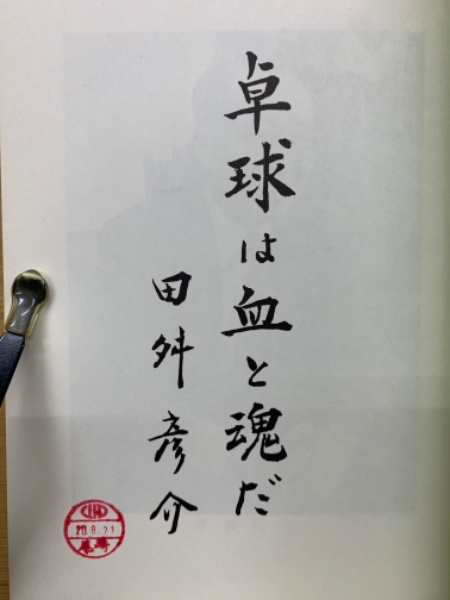 卓球は血と魂だ
田舛彦介
20.8.21